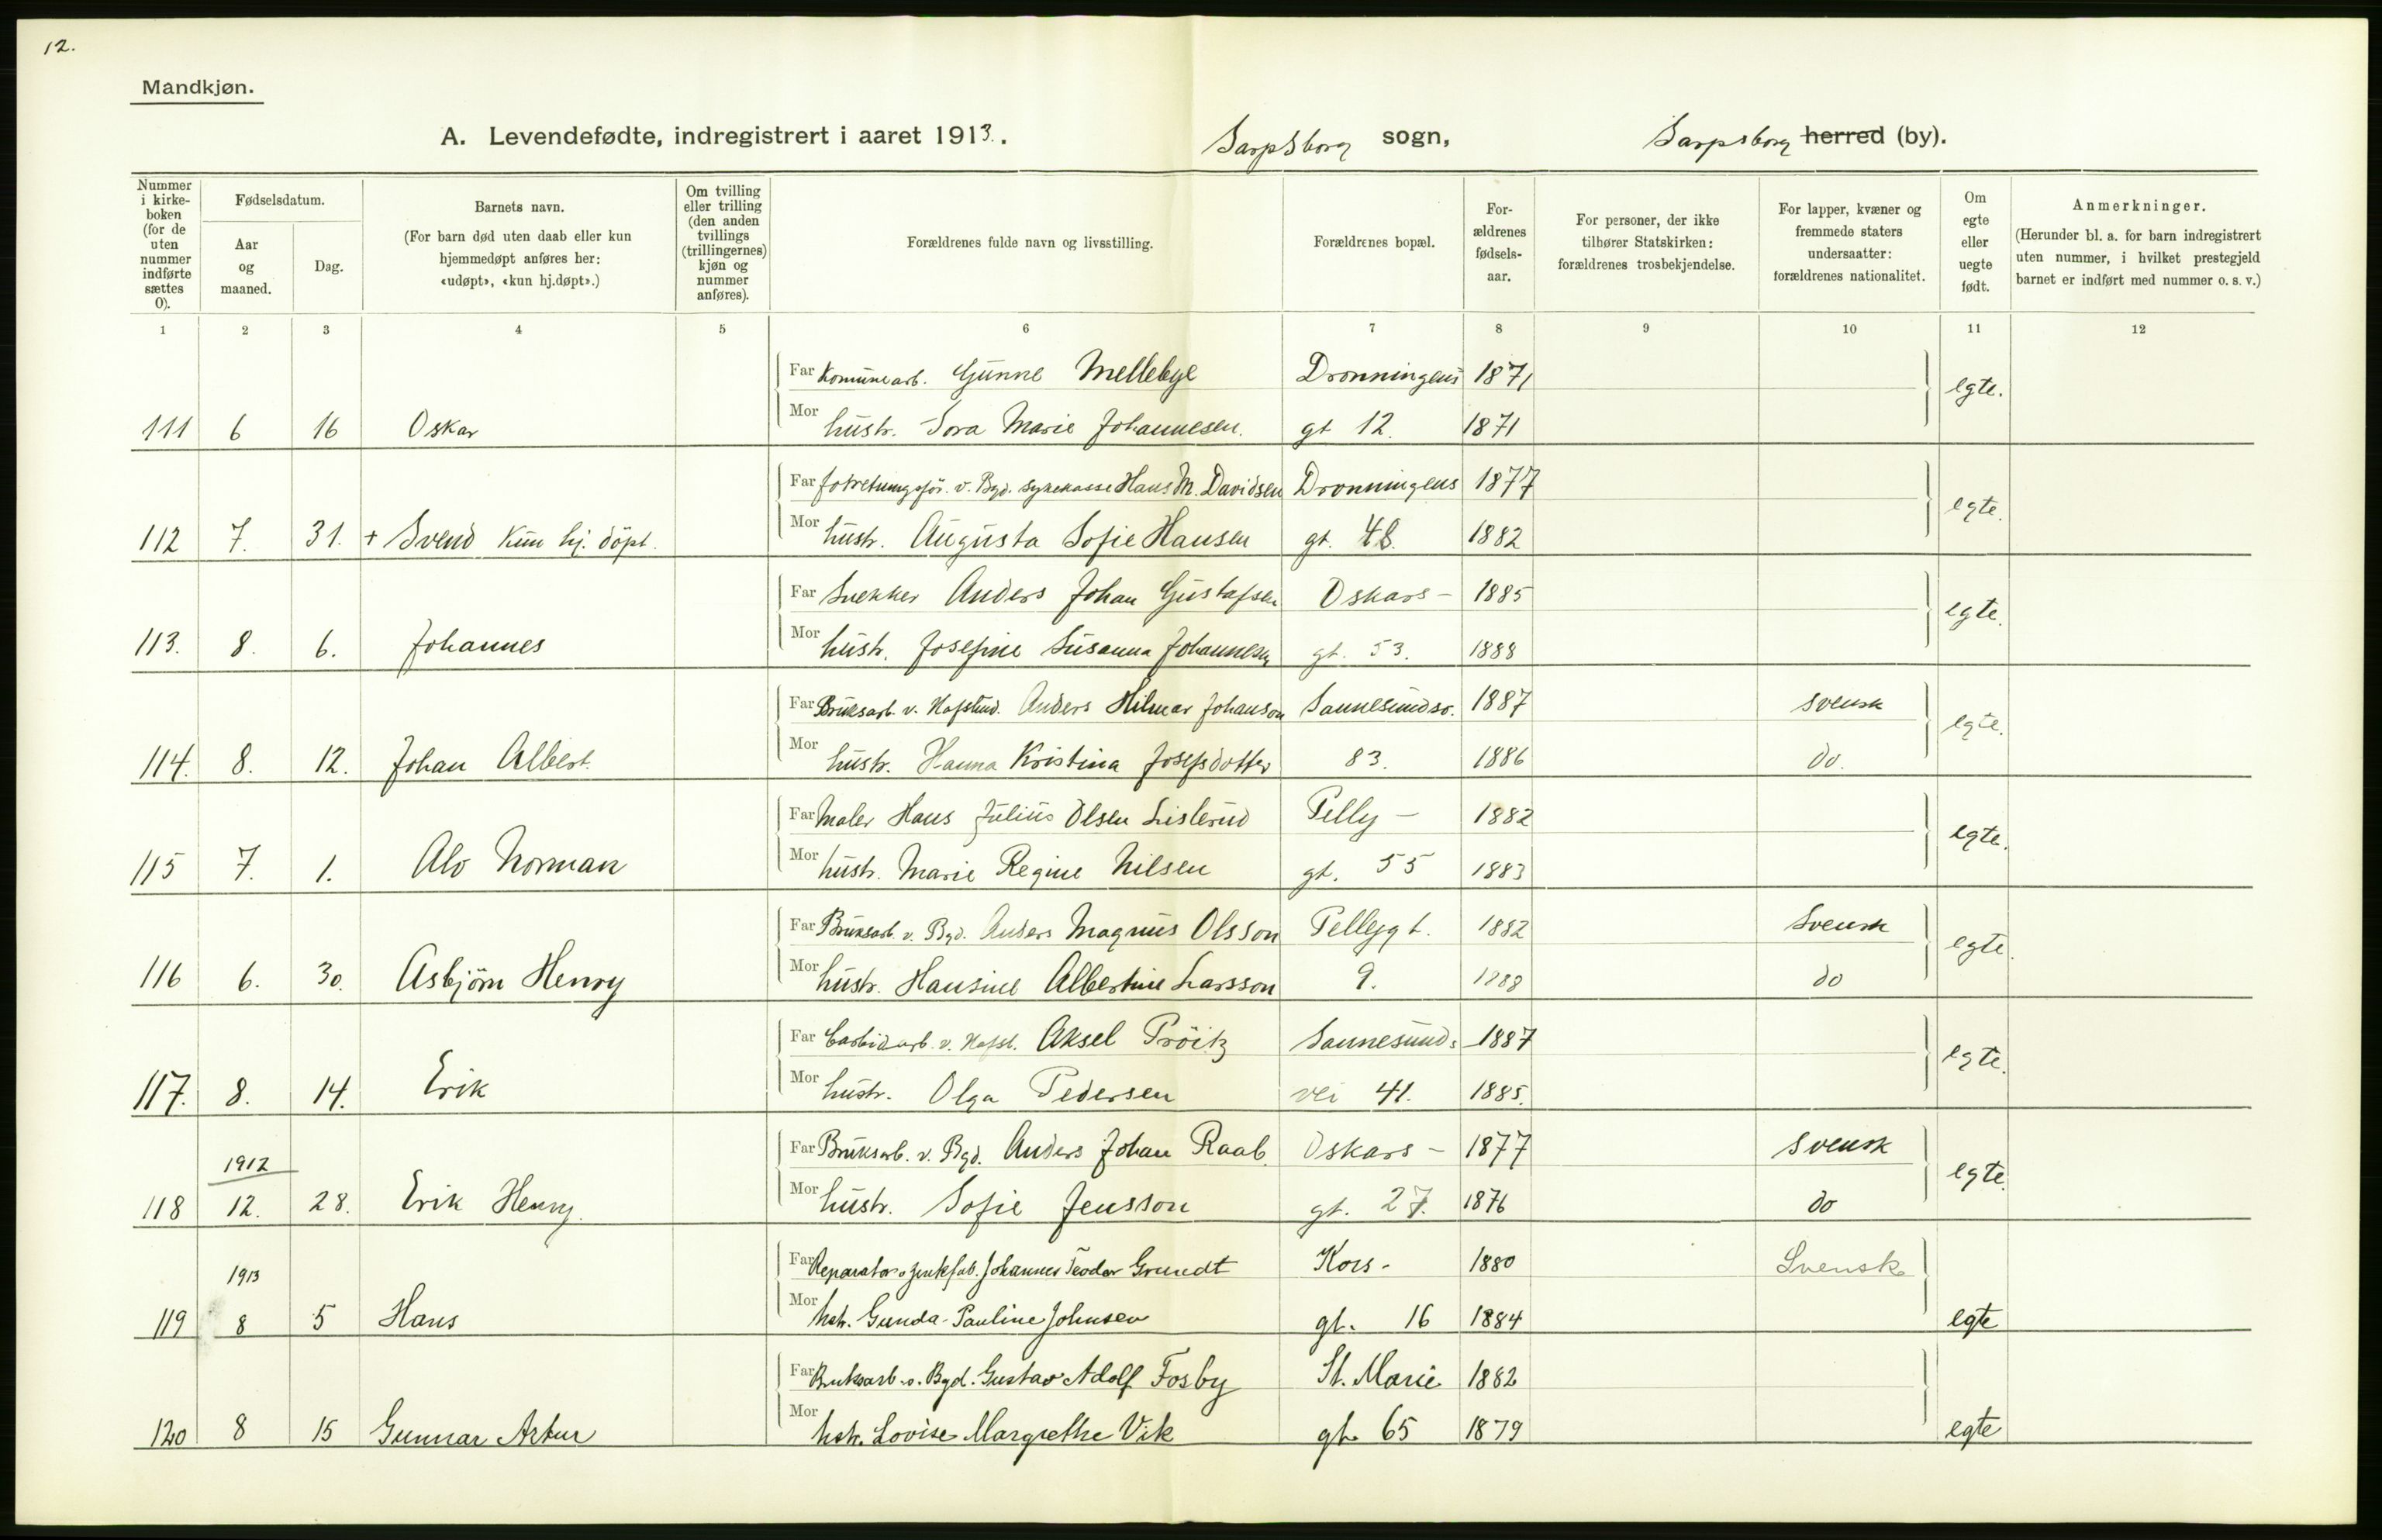 12.
Mandkjøn.
A. Levendefødte, indregistrert i aaret 1913. Sarpsborg sogn, Sarpsborg herred (by).
Nummer i kirke-boken (for de uten nummer indførte sættes 0).
Fødselsdatum.
Aar og maaned.
Dag.
Barnets navn.
(For barn død uten daab eller kun hjemmedøpt anføres her: «udøpt», «kun hj.døpt».)
Om tvilling eller trilling (den anden tvillings (trillingernes) kjøn og nummer anføres).
Forældrenes fulde navn og livsstilling.
Forældrenes bopæl.
For-ældrenes fødsels-aar.
For personer, der ikke tilhører Statskirken: forældrenes trosbekjendelse.
For lapper, kvæner og fremmede staters undersaatter: forældrenes nationalitet.
Om egte eller uegte født.
Anmerkninger.
(Herunder bl. a. for barn indregistrert uten nummer, i hvilket prestegjeld barnet er indført med nummer o. s. v.)
1 2 3 4 5 6 7 8 9 10 11 12
Far Komünearb. Günne Mellebye Dronningens 1871 egte.
111 6 16 Oskar Mor hustr. Tora Marie Johannesen. gt 12. 1871
Far forretningsför. v. Bgd. sykekasse Hans M. Davidsen Dronningens 1877 egte.
112 7. 31. + Svend Kün hj. döpt. Mor hüstr. Augusta Sofie Hansen gt. 48. 1882
Far Snekker Anders Johan Gustafsen Oskars- 1885 egte.
113. 8. 6. Johannes Mor hüstr. Josefine Susanna Johannesen gt. 53. 1888
Far Bruksarb. v. Hafslund. Anders Hilmar Johanson Sannesundsv. 1887 svensk egte.
114. 8. 12. Johan Albert. Mor hüstr. Hanna Kristina Josefsdotter 83. 1886 do.
Far Maler Hans Julius Olsen Lislerud Pelly- 1882 egte.
115 7. 1. Alv Norman Mor hüstr. Marie Regine Nilsen gt. 55 1883
Far Bruksarb. v. Bgd. Anders Magnus Olsson Pellygt. 1882 Svensk egte.
116 6. 30. Asbjörn Henry Mor hüstr. Hansine Albertine Larsson 9. 1888 do
Far Carbidarb. v. Hafsl. Aksel Pröitz Sannesunds- 1887 egte.
117. 8. 14. Erik Mor hüstr. Olga Pedersen vei 41. 1885.
1912 Far Bruksarb. v. Bgd. Anders Johan Raab. Oskars- 1877 svensk egte.
118 12. 28. Erik Henry. Mor hüstr. Sofie Jensson gt. 27. 1876 do
1913 Far Reparatør v. zinkfab. Johannes Teodor Grundt Kors- 1880 Svensk
119 8 5 Hans Mor hstr. Gunda Pauline Johnsen gt. 16 1884 egte
Far Bruksarb. v. Bgd. Gustav Adolf Fosby St. Marie 1882
120 8 15 Gunnar Artur Mor hstr. Lovise Margrethe Vik gt. 65 1879 egte